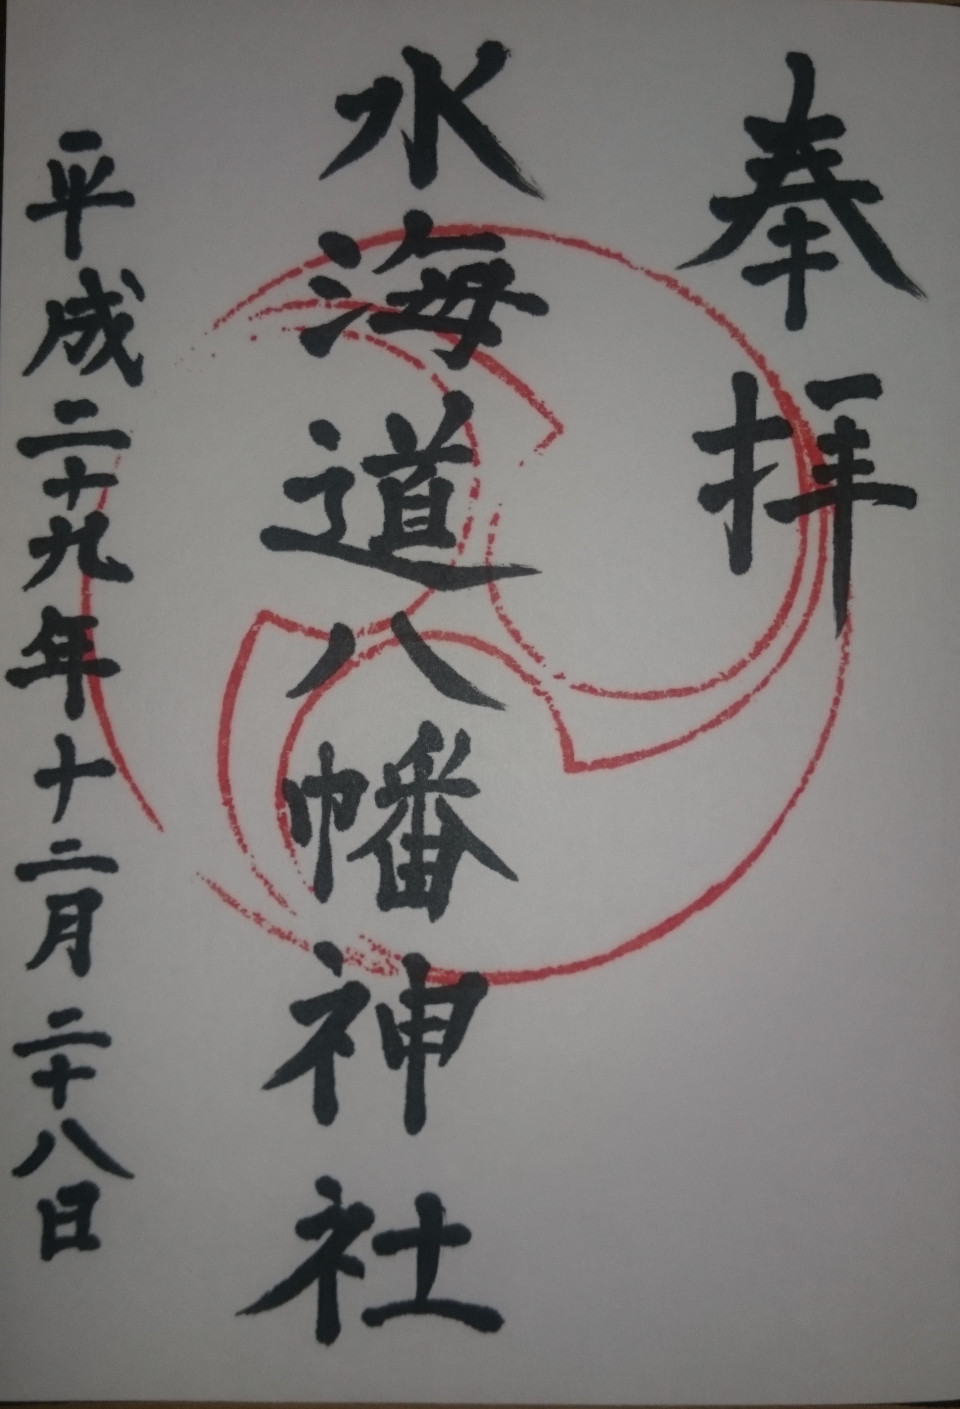 奉拝
水海道八幡神社
平成二十九年十二月二十八日